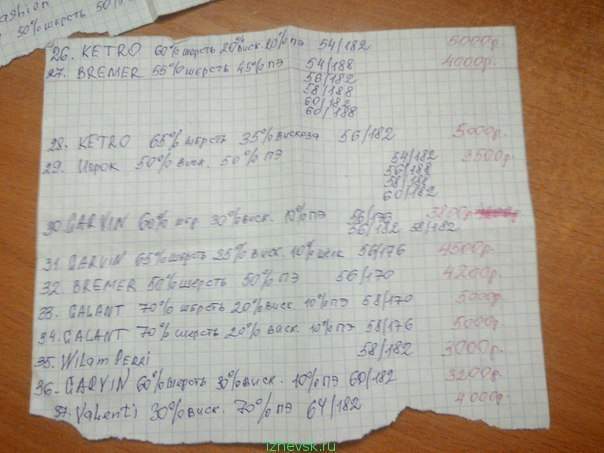 ashion
50% шерсть 50%
26. KETRO 60% шерсть 20% виск. 20% ПЭ 54/182 5000р.
27. BREMER 55% шерсть 45% ПЭ 54/188 4000р.
56/182
58/188
60/182
60/188
28. KETRO 65% шерсть 35% вискоза 56/182 5000р.
29. 50% виск. 50% ПЭ 54/182 3500р.
56/188
58/188
60/182
30. GARVIN 60% шер. 30% виск. 10% ПЭ 56/176 3200р.
56/182 58/182
31. GARVIN 65% шерсть 25% виск. 10% 56/176 4500р.
32. BREMER 50% шерсть 50% ПЭ 56/170 4200р.
33. GALANT 70% шерсть 20% виск. 10% ПЭ 58/170 5000р.
34. GALANT 70% шерсть 20% виск. 10% ПЭ 58/176 5000р.
35. Wilam Perri 58/182 3000р.
36. GARVIN 60% шерсть 30% виск. 10% ПЭ 60/182 3200р.
37. Valenti 30% виск. 70% ПЭ 64/182 4000р.
izhevsk.ru